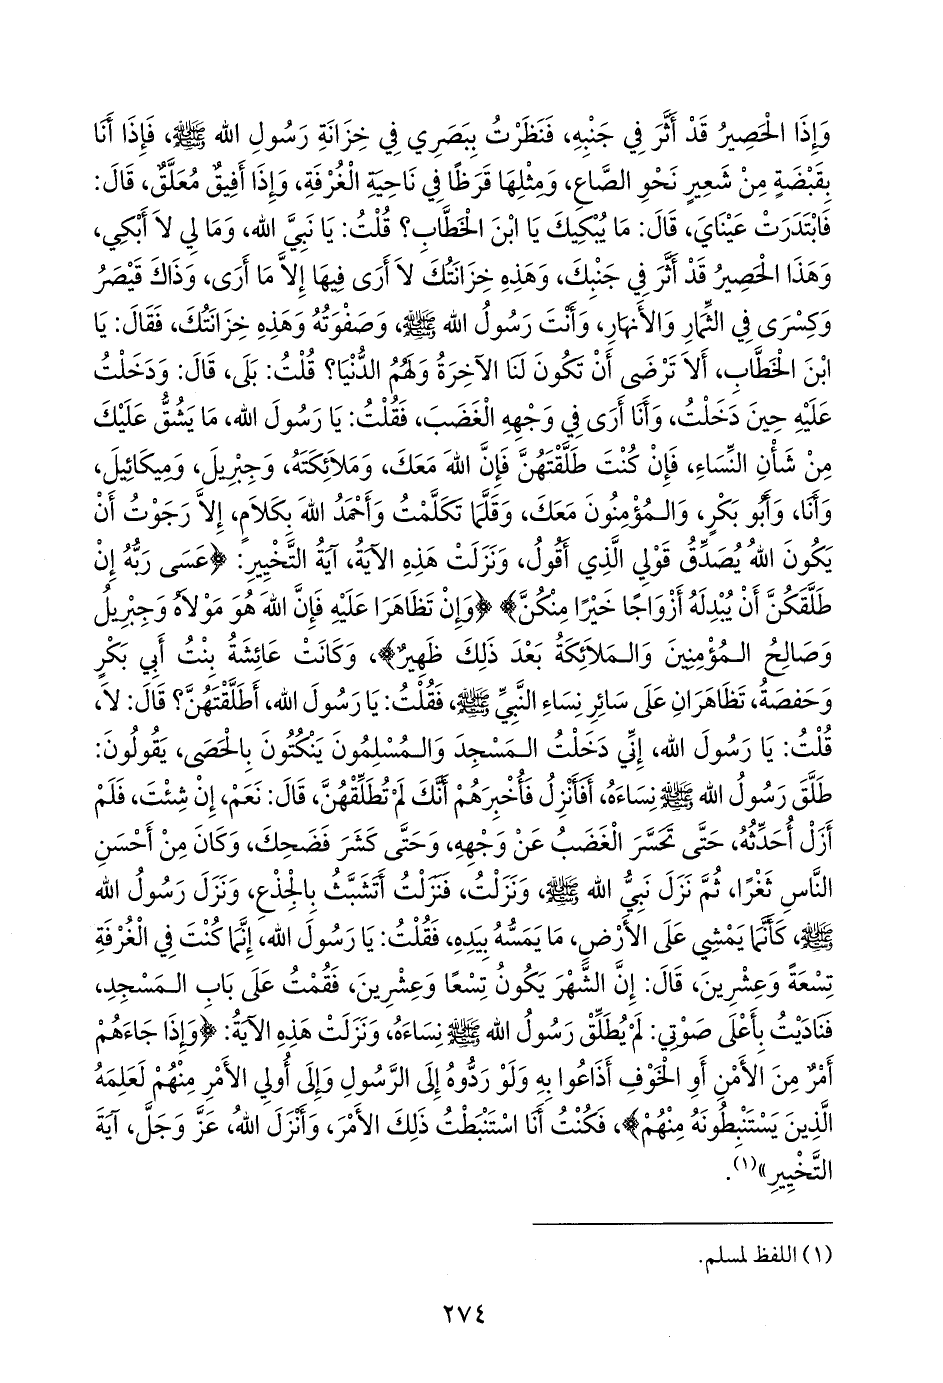 وَإِذَا الْحَصِيرُ قَدْ أَثَّرَ فِي جَنْبِهِ، فَنَظَرْتُ بِبَصَرِي فِي خِزَانَةِ رَسُولِ الله ﷺ، فَإِذَا أَنَا
بِقَبْضَةٍ مِنْ شَعِيرٍ نَحْوِ الصَّاعِ، وَمِثْلِهَا قَرَظًا فِي نَاحِيَةِ الْغُرْفَةِ، وَإِذَا أَفِيقٌ مُعَلَّقٌ، قَالَ:
فَابْتَدَرَتْ عَيْنَايَ، قَالَ: مَا يُبْكِيكَ يَا ابْنَ الْخَطَّابِ؟ قُلْتُ: يَا نَبِيَّ الله، وَمَا لِي لاَ أَبْكِي،
وَهَذَا الْحَصِيرُ قَدْ أَثَّرَ فِي جَنْبِكَ، وَهَذِهِ خِزَانَتُكَ لاَ أَرَى فِيهَا إِلاَّ مَا أَرَى، وَذَاكَ قَيْصَرُ
وَكِسْرَى فِي الثِّمَارِ وَالأَنهَارِ، وَأَنْتَ رَسُولُ الله ﷺ، وَصَفْوَتُهُ وَهَذِهِ خِزَانَتُكَ، فَقَالَ: يَا
ابْنَ الْخَطَّابِ، أَلاَ تَرْضَى أَنْ تَكُونَ لَنَا الآخِرَةُ وَلَهُمُ الدُّنْيَا؟ قُلْتُ: بَلَى، قَالَ: وَدَخَلْتُ
عَلَيْهِ حِينَ دَخَلْتُ، وَأَنَا أَرَى فِي وَجْهِهِ الْغَضَبَ، فَقُلْتُ: يَا رَسُولَ الله، مَا يَشُقُّ عَلَيْكَ
مِنْ شَأْنِ النِّسَاءِ، فَإِنْ كُنْتَ طَلَّقْتَهُنَّ فَإِنَّ اللهَ مَعَكَ، وَمَلاَئِكَتَهُ، وَجِبْرِيلَ، وَمِيكَائِيلَ،
وَأَنَا، وَأَبُو بَكْرٍ، وَالـمُؤْمِنُونَ مَعَكَ، وَقَلَّمَا تَكَلَّمْتُ وَأَحْمَدُ اللهَ بِكَلاَمٍ، إِلاَّ رَجَوْتُ أَنْ
يَكُونَ اللهُ يُصَدِّقُ قَوْلِي الَّذِي أَقُولُ، وَنَزَلَتْ هَذِهِ الآيَةُ، آيَةُ التَّخْيِيرِ: ﴿عَسَى رَبُّهُ إِنْ
طَلَّقَكُنَّ أَنْ يُبْدِلَهُ أَزْوَاجًا خَيْرًا مِنْكُنَّ﴾ ﴿وَإِنْ تَظَاهَرَا عَلَيْهِ فَإِنَّ اللهَ هُوَ مَوْلاَهُ وَجِبْرِيلُ
وَصَالِحُ الـمُؤْمِنِينَ وَالـمَلاَئِكَةُ بَعْدَ ذَلِكَ ظَهِيرٌ﴾، وَكَانَتْ عَائِشَةُ بِنْتُ أَبِي بَكْرٍ
وَحَفصَةُ، تَظَاهَرَانِ عَلَى سَائِرِ نِسَاءِ النَّبِيِّ ﷺ، فَقُلْتُ: يَا رَسُولَ الله، أَطَلَّقْتَهُنَّ؟ قَالَ: لاَ،
قُلْتُ: يَا رَسُولَ الله، إِنِّي دَخَلْتُ الـمَسْجِدَ وَالـمُسْلِمُونَ يَنْكُتُونَ بِالْحَصَى، يَقُولُونَ:
طَلَّقَ رَسُولُ الله ﷺ نِسَاءَهُ، أَفَأَنْزِلُ فَأُخْبِرَهُمْ أَنَّكَ لَمْ تُطَلِّقْهُنَّ، قَالَ: نَعَمْ، إِنْ شِئْتَ، فَلَمْ
أَزَلْ أُحَدِّثُهُ، حَتَّى تَحَسَّرَ الْغَضَبُ عَنْ وَجْهِهِ، وَحَتَّى كَشَرَ فَضَحِكَ، وَكَانَ مِنْ أَحْسَنِ
النَّاسِ ثَغْرًا، ثُمَّ نَزَلَ نَبِيُّ الله ﷺ، وَنَزَلْتُ، فَنَزَلْتُ أَتَشَبَّثُ بِالْجِذْعِ، وَنَزَلَ رَسُولُ الله
ﷺ، كَأَنَّمَا يَمْشِي عَلَى الأَرْضِ، مَا يَمَسُّهُ بِيَدِهِ، فَقُلْتُ: يَا رَسُولَ الله، إِنَّمَا كُنْتَ فِي الْغُرْفَةِ
تِسْعَةً وَعِشْرِينَ، قَالَ: إِنَّ الشَّهْرَ يَكُونُ تِسْعًا وَعِشْرِينَ، فَقُمْتُ عَلَى بَابِ الـمَسْجِدِ،
فَنَادَيْتُ بِأَعْلَى صَوْتِي: لَمْ يُطَلِّقْ رَسُولُ الله ﷺ نِسَاءَهُ، وَنَزَلَتْ هَذِهِ الآيَةُ: ﴿وَإِذَا جَاءَهُمْ
أَمْرٌ مِنَ الأَمْنِ أَوِ الْخَوْفِ أَذَاعُوا بِهِ وَلَوْ رَدُّوهُ إِلَى الرَّسُولِ وَإِلَى أُولِي الأَمْرِ مِنْهُمْ لَعَلِمَهُ
الَّذِينَ يَسْتَنْبِطُونَهُ مِنْهُمْ﴾، فَكُنْتُ أَنَا اسْتَنْبَطْتُ ذَلِكَ الأَمْرَ، وَأَنْزَلَ اللهُ، عَزَّ وَجَلَّ، آيَةَ
التَّخْيِيرِ»(١).
(١) اللفظ لمسلم.
٢٧٤